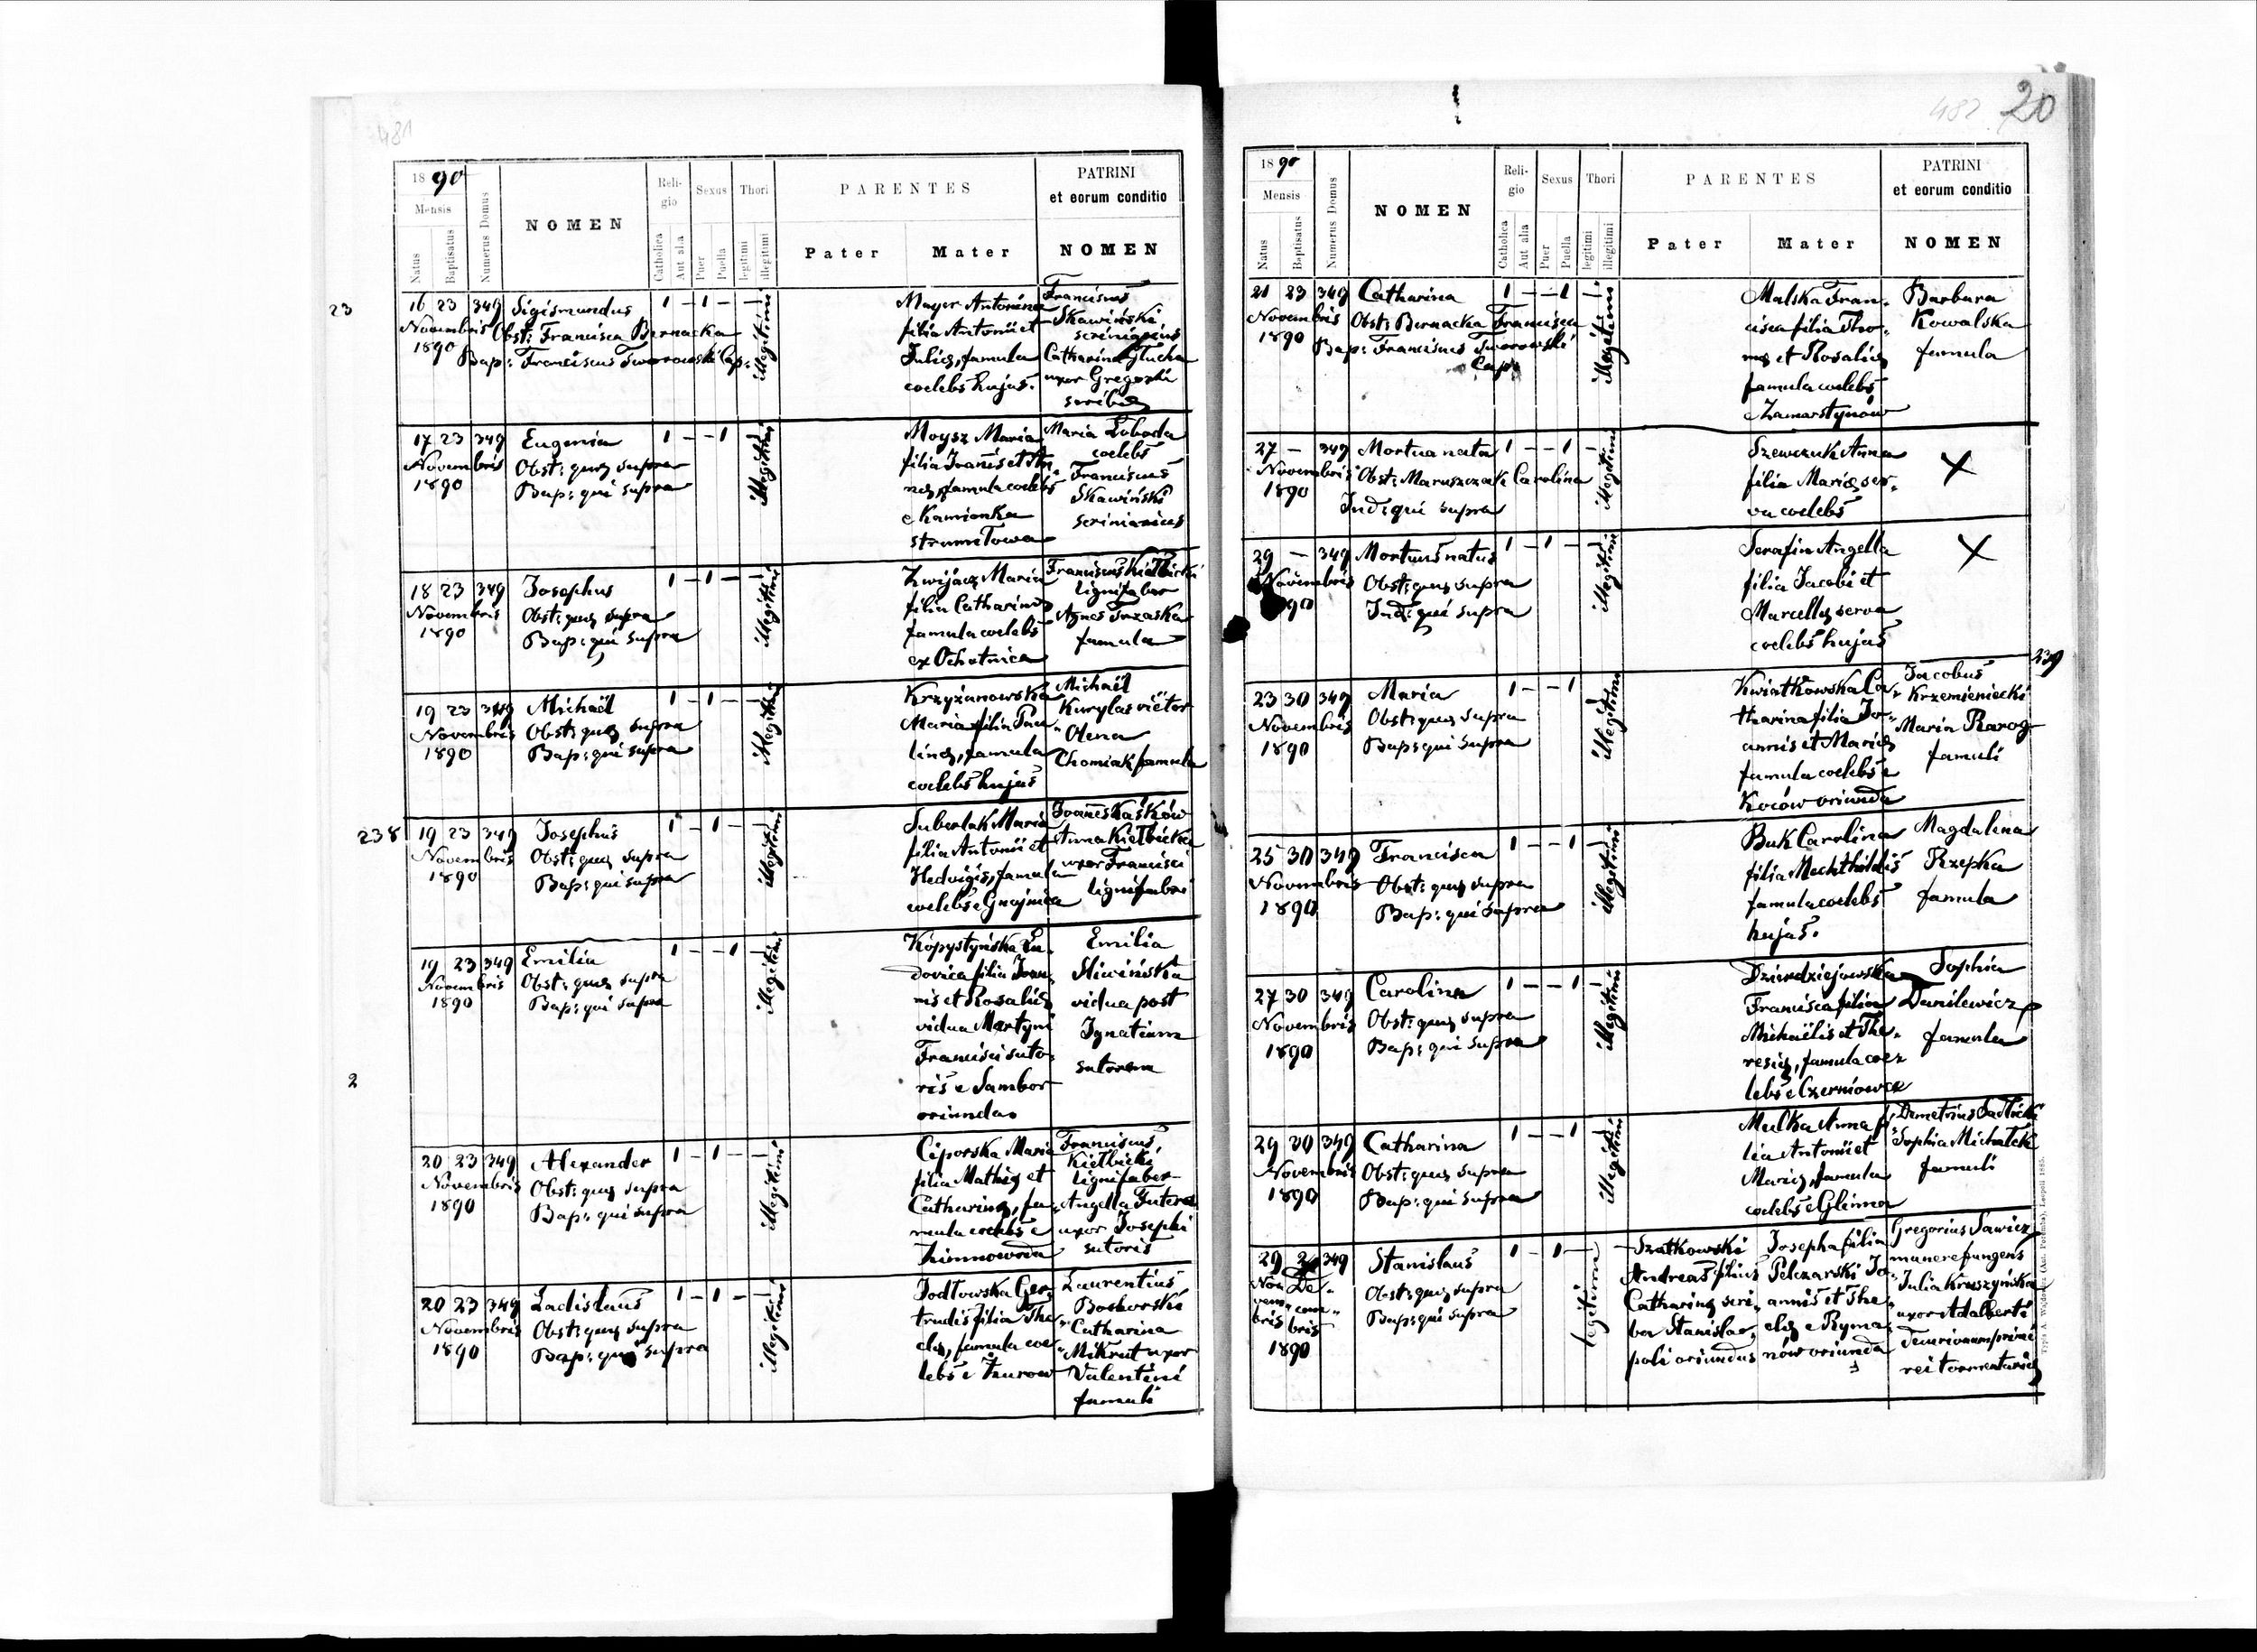 481
1890
Mensis
Natus
Baptisatus
Numerus Domus
NOMEN
Reli-
gio
Catholica
Aut alia
Sexus
Puer
Puella
Thori
legitimi
illegitimi
PARENTES
Pater
Mater
PATRINI
et eorum conditio
NOMEN
23
16 23 349 Sigismundus 1 - 1 - -
Novembris Obst: Francisca Bernacka
1890 Bap: Franciscus Tworowski Cap:
illegitimi
Mayer Antonina
filia Antonii et
Juliæ, famula
coelebs hujas.
Franciscus
Skawiński
scriniarius
Catharina Głucha
uxor Gregorii
scribæ
17 23 349 Eugenia 1 - - 1
Novembris Obst: quæ supra
1890 Bap: qui supra
illegitimi
Moysz Maria
filia Joannis et An-
næ, famula coelebs
e Kamionka
strumiłowa
Maria Łoboda
coelebs
Franciscus
Skawiński
scriniarius
18 23 349 Josephus 1 - 1 - -
Novembris Obst: quæ supra
1890 Bap: qui supra
illegitimi
Zwijacz Maria
filia Catharinæ
famula coelebs
ex Ochotnica
Franciscus Kiełbicki
lignifaber
Agnes Trzaska
famula
19 23 349 Michaël 1 - 1 - -
Novembris Obst: quæ supra
1890 Bap: qui supra
illegitimi
Krzyżanowska
Maria filia Pau-
linæ, famula
coelebs hujas
Michaël
Kurylas viëtor
Olena
Chomiak famula
238
19 23 349 Josephus 1 - 1 - -
Novembris Obst: quæ supra
1890 Bap: qui supra
illegitimi
Suberlak Maria
filia Antonii et
Hedvigis, famula
coelebs e Gnojnica
Joannes Kaśków
Anna Kiełbicka
uxor Francisci
lignifabri
19 23 349 Emilia 1 - - 1 -
Novembris Obst: quæ supra
1890 Bap: qui supra
illegitimi
Kopystyńska Lu-
dovica filia Joan-
nis et Rosaliæ
vidua Martyni
Francisci suto-
ris e Sambor
oriunda
Emilia
Śliwińska
vidua post
Ignatium
sutorem
2
20 23 349 Alexander 1 - 1 - -
Novembris Obst: quæ supra
1890 Bap: qui supra
illegitimi
Ciporska Maria
filia Mathiæ et
Catharinæ, fa-
mula coelebs e
Zimnowoda
Franciscus
Kiełbicki
lignifaber
Angella Futera
uxor Josephi
sutoris
20 23 349 Ladislaus 1 - 1 -
Novembris Obst: quæ supra
1890 Bap: qui supra
illegitimi
Podłowska Ger-
trudis filia The-
clæ, famula coe-
lebs e Żurow
Laurentius
Boskorski
Catharina
Mikrut uxor
Valentini
famuli
482 20
1890
Mensis
Natus
Baptisatus
Numerus Domus
NOMEN
Reli-
gio
Catholica
Aut alia
Sexus
Puer
Puella
Thori
legitimi
illegitimi
PARENTES
Pater
Mater
PATRINI
et eorum conditio
NOMEN
21 23 349 Catharina 1 - - 1 -
Novembris Obst: Bernacka Francisca
1890 Bap: Franciscus Tworowski
Cap:
illegitimi
Malska Fran-
cisca filia Tho-
mæ et Rosaliæ
famula coelebs
e Zamarstynów
Barbara
Kowalska
famula
27 - 349 Mortua nata 1 - - 1 -
Novembris Obst: Maruszczak Carolina
1890 Ind: qui supra
illegitimi
Szewczuk Anna
filia Mariæ, ser-
va coelebs
29 - 349 Mortuus natus 1 - 1 - -
Novembris Obst: quæ supra
90 Ind: qui supra
illegitimi
Serafin Angella
filia Jacobi et
Marcellæ serva
coelebs hujas
239
23 30 349 Maria 1 - - 1
Novembris Obst: quæ supra
1890 Bap: qui supra
illegitimi
Kwiatkowska Ca-
tharina filia Jo-
annis et Mariæ
famula coelebs e
Koców oriunda
Jacobus
Krzemieniecki
Maria Rarog
famuli
25 30 349 Francisca 1 - - 1 -
Novembris Obst: quæ supra
1890 Bap: qui supra
illegitimi
Buk Carolina
filia Mechthildis
famula coelebs
hujas.
Magdalena
Rzepka
famula
27 30 349 Carolina 1 - - 1 -
Novembris Obst: quæ supra
1890 Bap: qui supra
illegitimi
Dzierdziejowska
Francisca filia
Michaëlis et The-
resiæ, famula coe-
lebs e Czerniowce
Sophia
Danilewicz
famula
29 30 349 Catharina 1 - - 1
Novembris Obst: quæ supra
1890 Bap: qui supra
illegitimi
Mulka Anna fi-
lia Antonii et
Mariæ, famula
coelebs e Glinna
Demetrius Sadlicki
Sophia Michałek
famuli
29 349 Stanislaus 1 - 1 -
Novem- Decem-
bris bris
1890
Obst: quæ supra
Bap: qui supra
legitimi
Szatkowski
Andreas filius
Catharinæ scri-
ba Stanislao-
poli oriundus
Josepha filia
Pelczarski Jo-
annis et The-
clæ e Ryma-
nów oriunda
Gregorius Sawicz
munere fungens
Julia Kruszyńska
uxor Adalberti
decurionum primi
rei tormentariæ